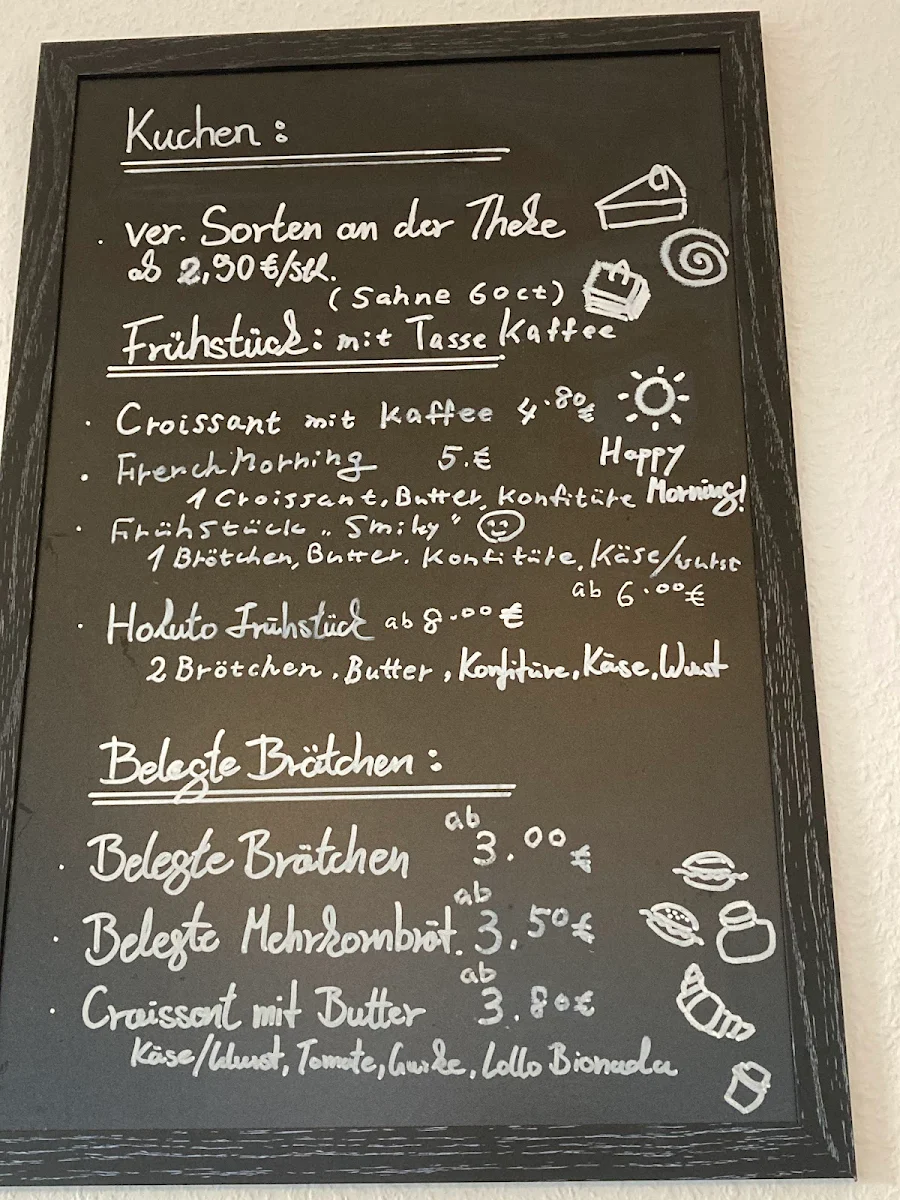 Kuchen :
· ver. Sorten an der Theke
ab 2,90 €/stk.
(Sahne 60ct)
Frühstück: mit Tasse Kaffee
· Croissant mit Kaffee 4.80 €
· French Morning 5.€
1 Croissant, Butter, Konfitüre
Happy
Morning!
· Frühstück „Smiley"
1 Brötchen, Butter, Konfitüre, Käse/Wurst
ab 6.00 €
· Hokuto Frühstück ab 8.00 €
2 Brötchen, Butter, Konfitüre, Käse, Wurst
Belegte Brötchen :
· Belegte Brötchen ab 3.00 €
· Belegte Mehrkornbröt. ab 3.50 €
· Croissant mit Butter ab 3.80 €
Käse/Wurst, Tomate, Gurke, Lollo Bionada